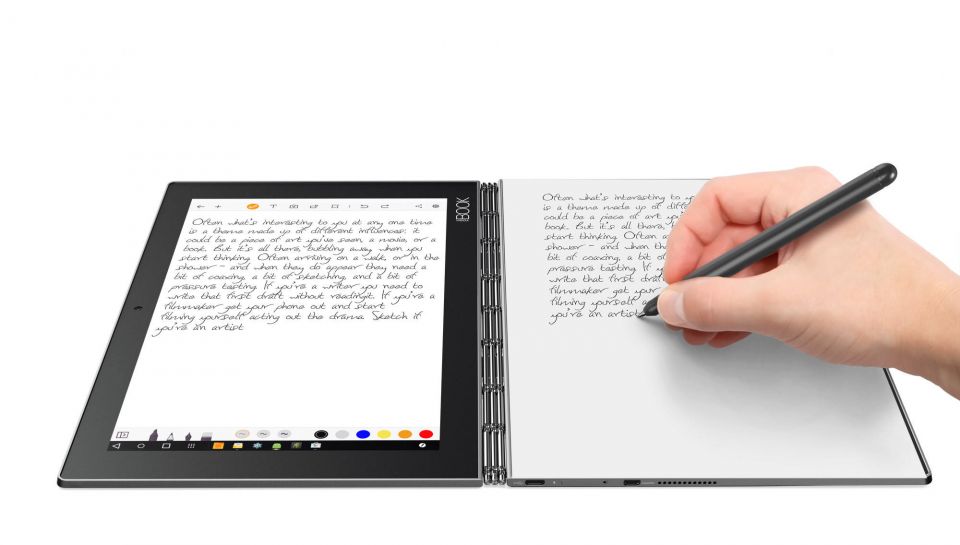 Often what's interesting to you at any one time
is a theme made up of different influences: it
could be a piece of art you've seen, a movie, or a
book. But it's all there, bubbling away when you
start thinking. Often arriving on a walk, or in the
shower - and when they do appear they need a
bit of coaxing, a bit of sketching, and a bit of
pressure testing. If you're a writer you need to
write that first draft without readingit. If you're a
filmmaker get your phone out and start
filming yourself acting out the drama. Sketch if
you're an artist
BOOK
Often what's interesting to
is a theme made up of
could be a piece of art
book. But it's all there,
start thinking. Often
shower - and when
bit of coaxing, a bit of
pressure testing. If
write that first draft
filmmaker get your
filming yourself
you're an artist